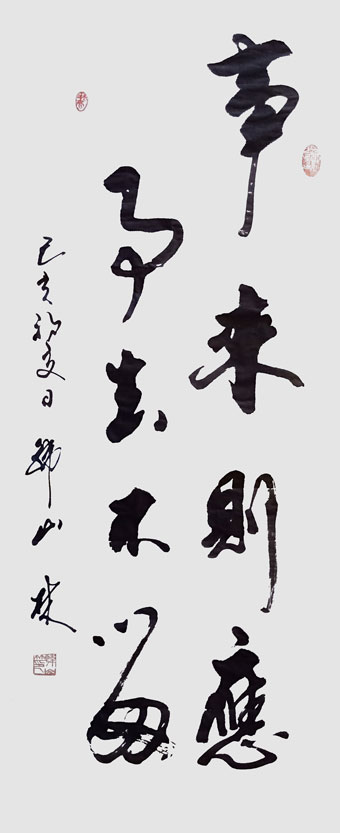 事来則應
事去不留
己亥初夏日 山林